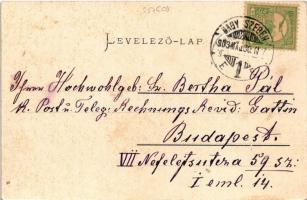 LEVELEZŐ-LAP
NAGY SZEBEN
Ihrer Hochwohlgeb: Fr. Bertha Pál
K. Post u. Teleg: Rechnungs Revid: Gattin
Budapest.
VII Nefelejtsutcza 59 sz:
I eml. 14.